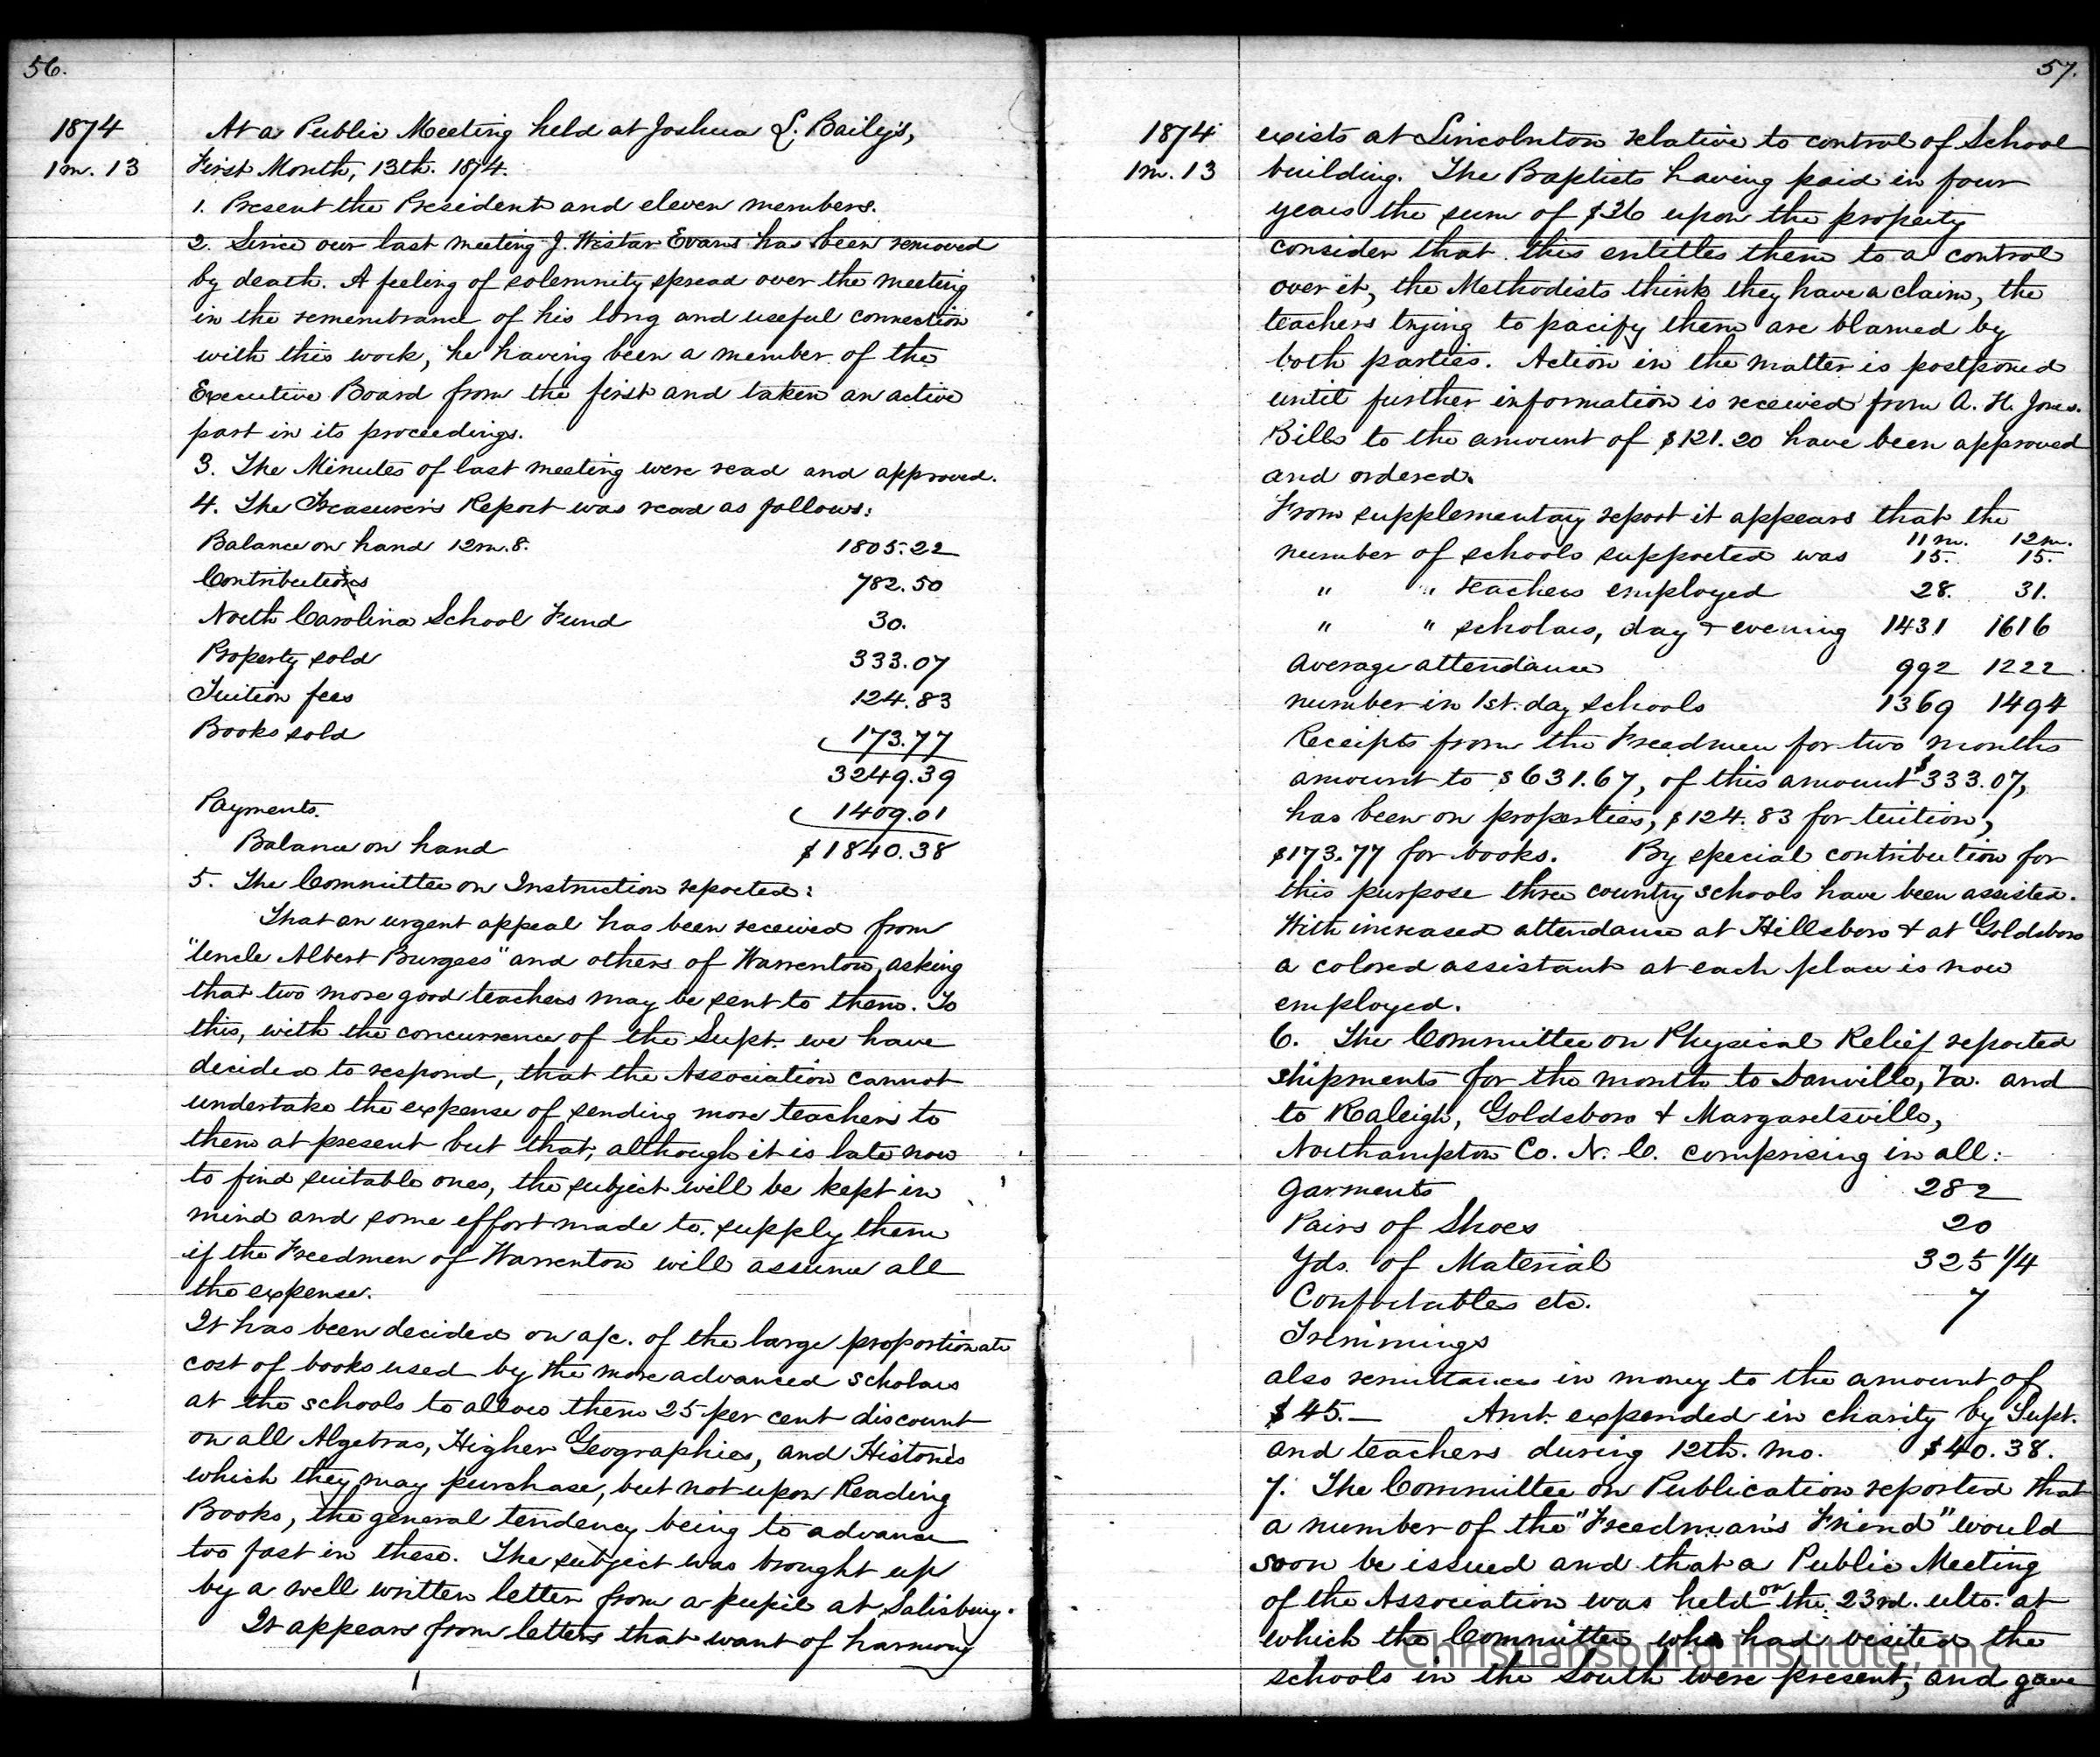 56.
1874
1m. 13
At a Public Meeting held at Joshua L. Baily's,
First Month, 13th. 1874.
1. Present the President and eleven members.
2. Since our last meeting J. Wistar Evans has been removed
by death. A feeling of solemnity spread over the meeting
in the remembrance of his long and useful connection
with this work, he having been a member of the
Executive Board from the first and taken an active
part in its proceedings.
3. The Minutes of last meeting were read and approved.
4. The Treasurer's Report was read as follows:
Balance on hand 12m. 8. 1805.22
Contributions 782.50
North Carolina School Fund 30.
Property sold 333.07
Tuition fees 124.83
Books sold 173.77
3249.39
Payments. 1409.01
Balance on hand $1840.38
5. The Committee on Instruction reported:
That an urgent appeal has been received from
"Uncle Albert Burgess" and others of Warrenton, asking
that two more good teachers may be sent to them. To
this, with the concurrence of the Supt. we have
decided to respond, that the Association cannot
undertake the expense of sending more teachers to
them at present but that, although it is late now
to find suitable ones, the subject will be kept in
mind and some effort made to supply them
if the Freedmen of Warrenton will assume all
the expense.
It has been decided on a/c. of the large proportionate
cost of books used by the more advanced scholars
at the schools to allow them 25 per cent discount
on all Algebras, Higher Geographies, and Histories
which they may purchase, but not upon Reading
Books, the general tendency being to advance
too fast in these. The subject was brought up
by a well written letter from a pupil at Salisbury.
It appears from letters that want of harmony
57.
1874
1m. 13
exists at Lincolnton relative to control of School
building. The Baptists having paid in four
years the sum of $36 upon the property
consider that this entitles them to a control
over it, the Methodists think they have a claim, the
teachers trying to pacify them are blamed by
both parties. Action in the matter is postponed
until further information is received from A. H. Jones.
Bills to the amount of $121.20 have been approved
and ordered.
From supplementary report it appears that the
11m. 12m.
number of schools supported was 15. 15.
" " teachers employed 28. 31.
" " scholars, day & evening 1431 1616
Average attendance 992 1222
number in 1st. day schools 1369 1494
Receipts from the Freedmen for two months
amount to $631.67, of this amount $333.07,
has been on properties, $124.83 for tuition,
$173.77 for books. By special contribution for
this purpose three country schools have been assisted.
With increased attendance at Hillsboro & at Goldsboro
a colored assistant at each place is now
employed.
6. The Committee on Physical Relief reported
shipments for the month to Danville, Va. and
to Raleigh, Goldsboro & Margaretsville,
Northampton Co. N. C. comprising in all:-
Garments 282
Pairs of Shoes 20
Yds. of Material 325 1/4
Comfortables etc. 7
Trimmings
also remittances in money to the amount of
$45.— Amt. expended in charity by Supt.
and teachers during 12th. mo. $40.38.
7. The Committee on Publication reported that
a number of the "Freedman's Friend" would
soon be issued and that a Public Meeting
of the Association was held on the 23rd. ulto. at
which the Committee who had visited the
schools in the South were present, and gave
Christiansburg Institute, Inc